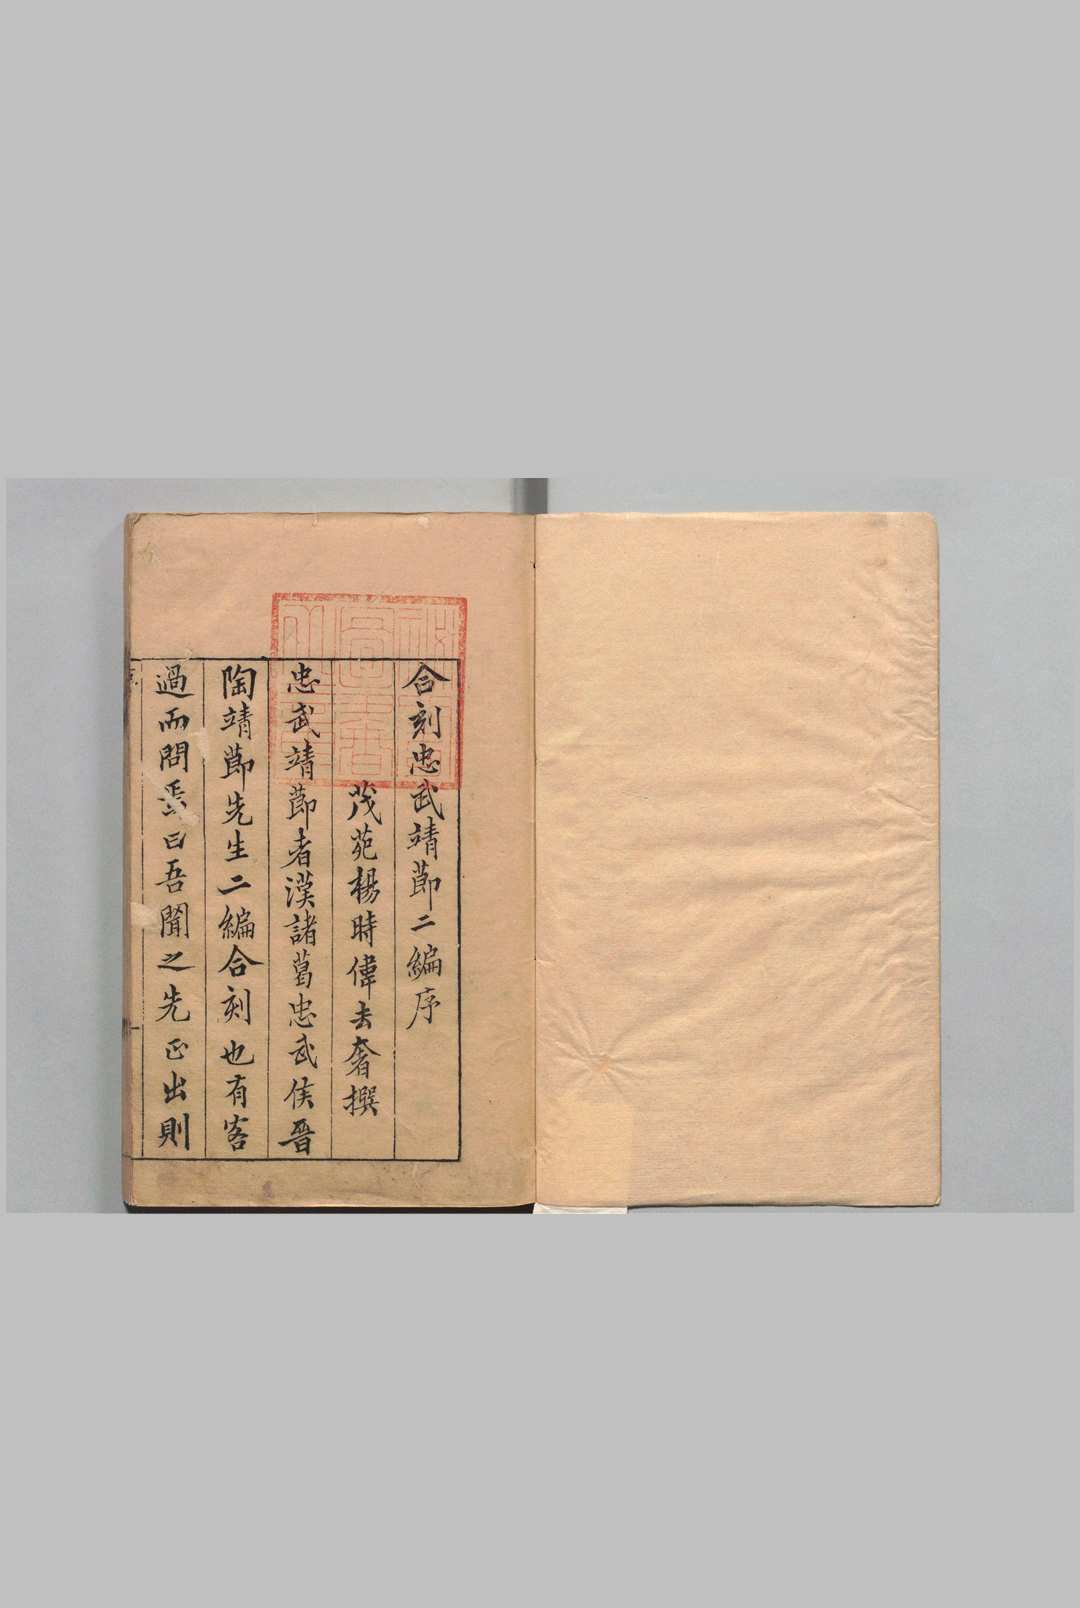 合刻忠武靖節二編序
茂苑楊時偉去奢撰
忠武靖節者漢諸葛忠武侯晉
陶靖節先生二編合刻也有客
過而問焉曰吾聞之先正出則